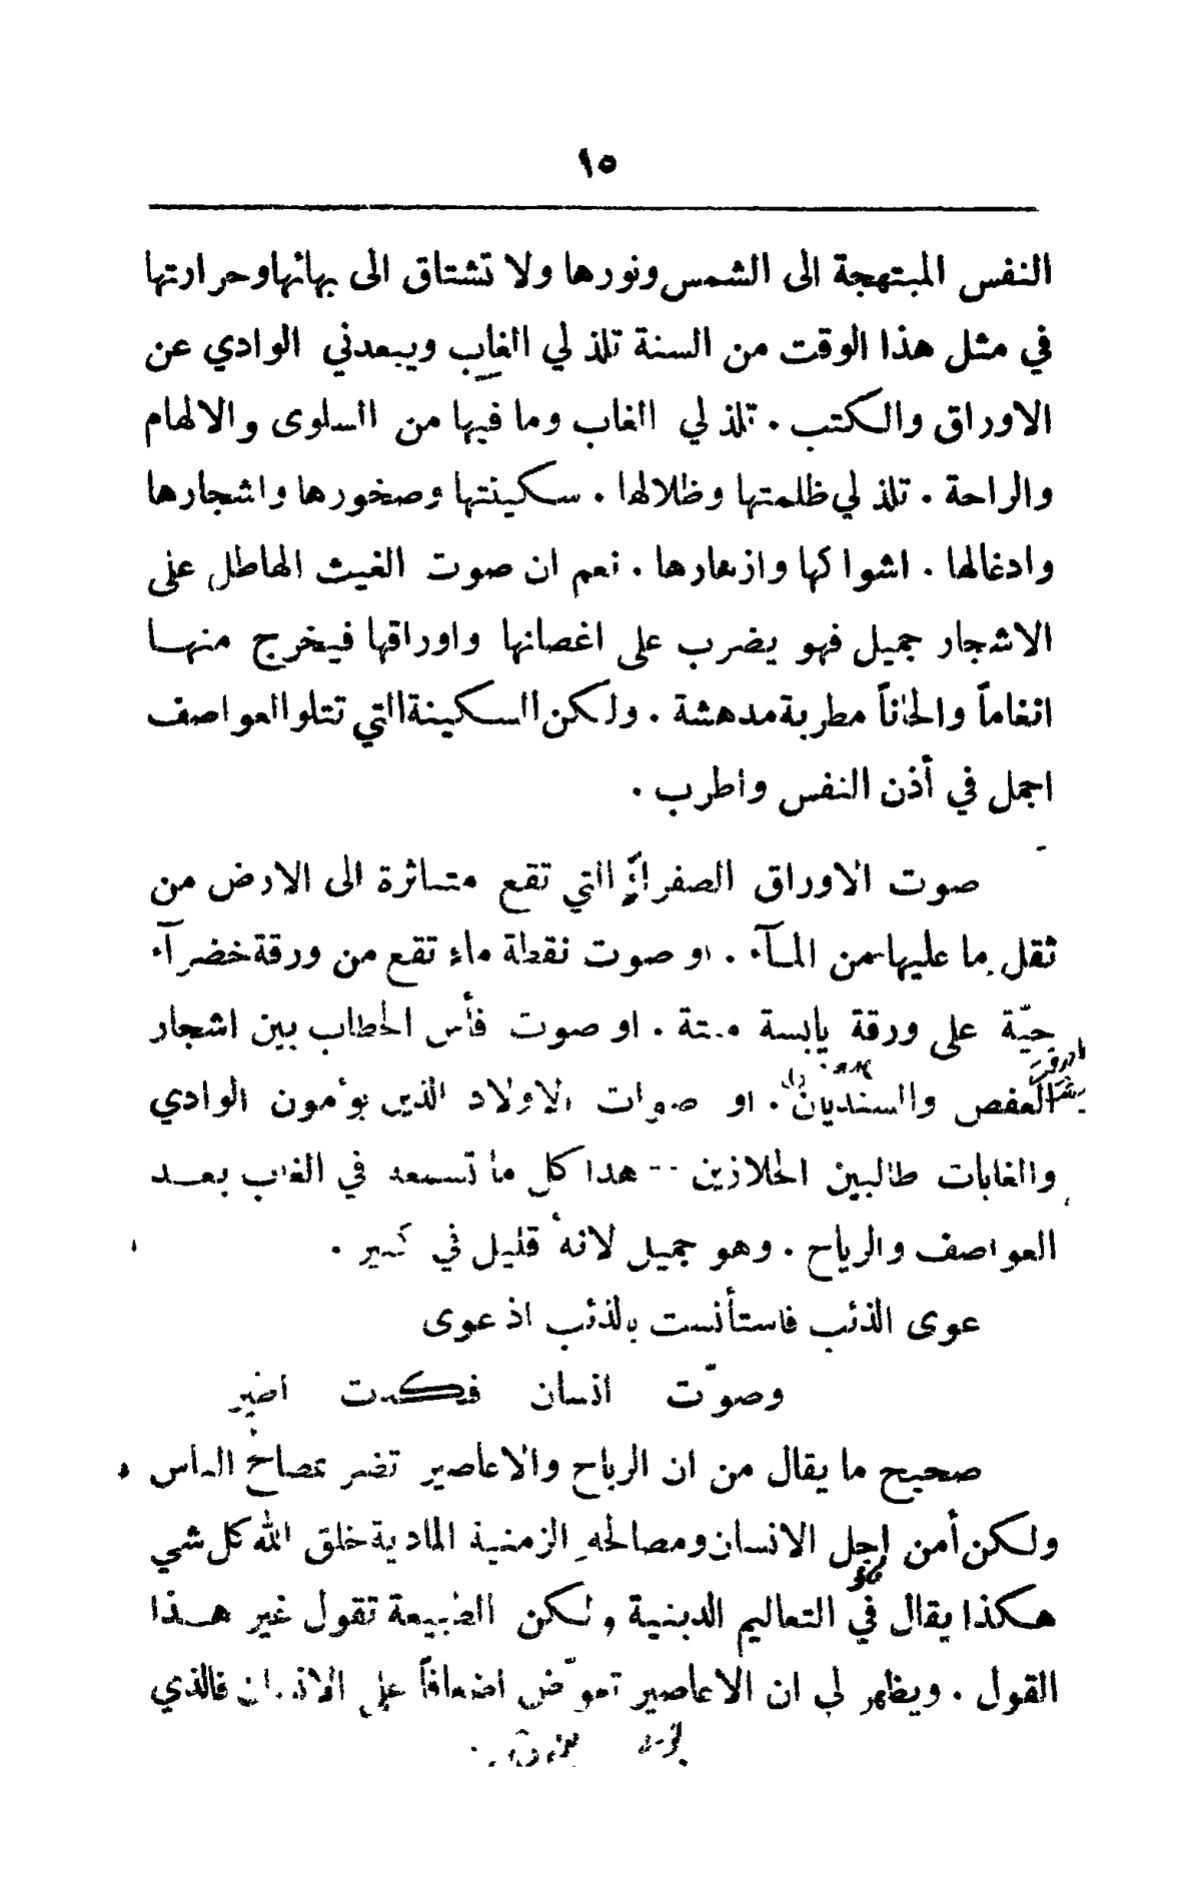 ١٥
النفس المبتهجة الى الشمس ونورها ولا تشتاق الى بهائها وحرارتها
في مثل هذا الوقت من السنة تلذ لي الغاب ويبعدني الوادي عن
الاوراق والكتب . تلذ لي الغاب وما فيها من السلوى والالهام
والراحة . تلذ لي ظلمتها وظلالها . سكينتها وصخورها واشجارها
وادغالها . اشواكها وازهارها . نعم ان صوت الغيث الهاطل على
الاشجار جميل فهو يضرب على اغصانها واوراقها فيخرج منها
انغاماً والحاناً مطربة مدهشة . ولكن السكينة التي تتلو العواصف
اجمل في أذن النفس واطرب .
صوت الاوراق الصفرآء التي تقع متساثرة الى الارض من
ثقل ما عليها من المآء . او صوت نقطة ماء تقع من ورقة خضرآء
حيّة على ورقة يابسة ميتة . او صوت فأس الحطاب بين اشجار
العفص والسنديان . او صوات الاولاد الذين يؤمون الوادي
والغابات طالبين الحلازين -- هذا كل ما تسمعه في الغاب بعد
العواصف والرياح . وهو جميل لانهُ قليل في كثير .
عوى الذئب فاستأنست بالذئب اذ عوى
وصوّت انسان فكدت اضير
صحيح ما يقال من ان الرياح والاعاصير تضر بمصالح الناس
ولكن أمن اجل الانسان ومصالحهِ الزمنية المادية خلق الله كل شي
هكذا يقال في التعاليم الدينية ولكن الطبيعة تقول غير هذا
القول . ويظهر لي ان الاعاصير تعوّض اضعافاً على الانسان فالذي